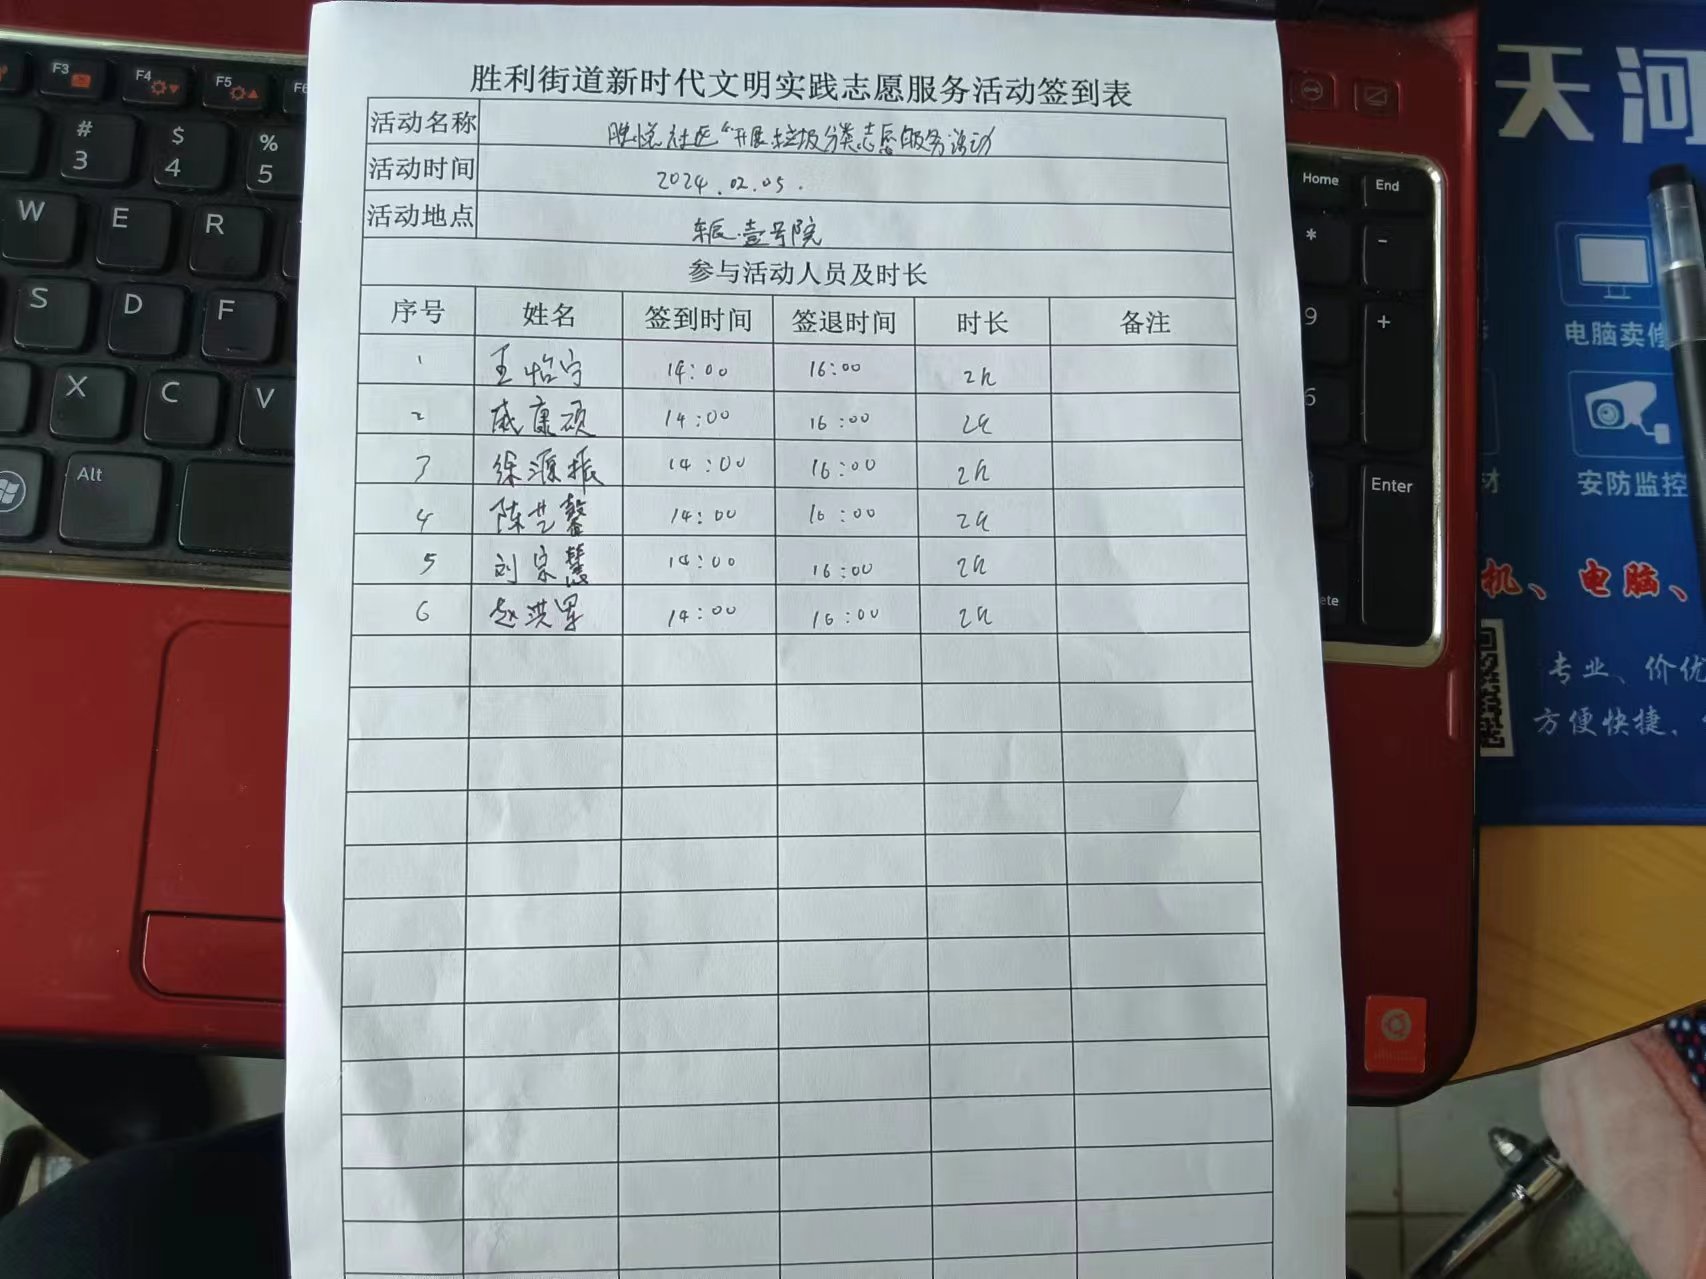 胜利街道新时代文明实践志愿服务活动签到表
活动名称 胜悦社区“开展垃圾分类志愿服务活动
活动时间 2024.02.05.
活动地点 东辰·壹号院
参与活动人员及时长
序号 姓名 签到时间 签退时间 时长 备注
1 王怡宁 14:00 16:00 2h
2 戚康硕 14:00 16:00 2h
3 徐源振 14:00 16:00 2h
4 陈艺馨 14:00 16:00 2h
5 刘宗慧 14:00 16:00 2h
6 赵洪军 14:00 16:00 2h
F3
F4
F5
F6
#
3
$
4
%
5
W
E
R
S
D
F
X
C
V
Alt
Home
End
*
-
9
+
6
Enter
天河
电脑卖修
安防监控
材
机、电脑、
专业、价优
方便快捷、